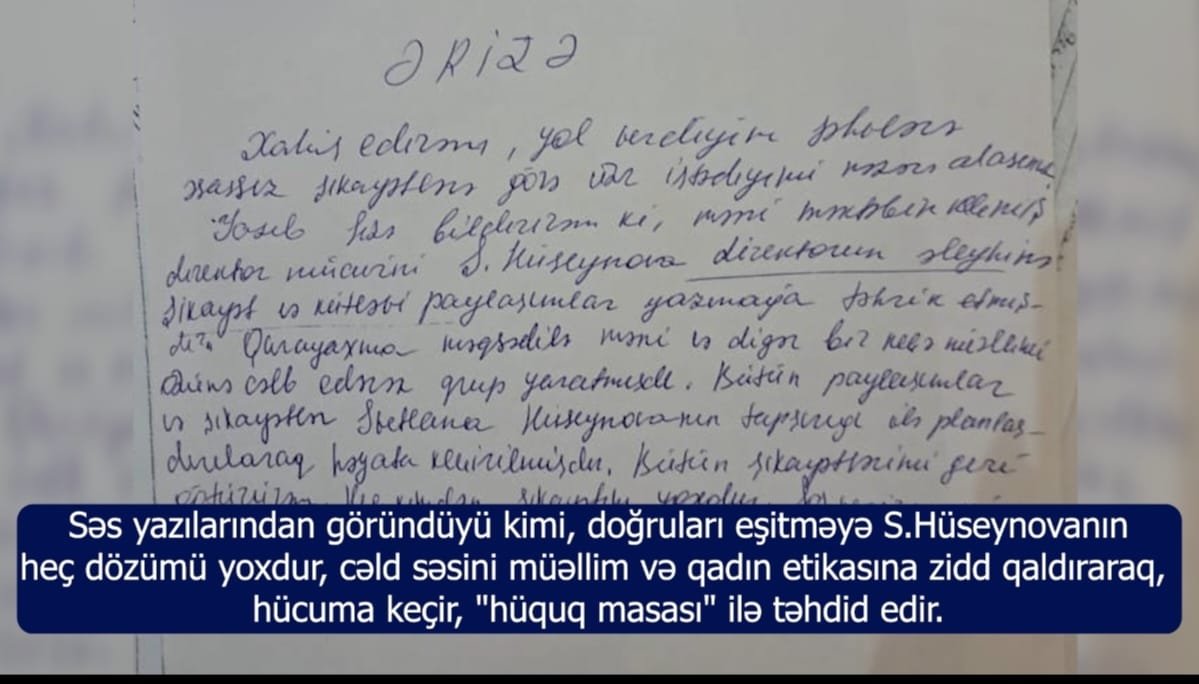 ƏRİZƏ
Xahiş edirəm, yol verdiyim səhvlərə
əsassız şikayətlərə görə üzr istədiyimi nəzərə alasınız.
bildirirəm ki, məni məktəbin
direktor müavini S. Hüseynova direktorun əleyhinə
şikayət və kütləvi paylaşımlar yazmağa təhrik etmiş-
dir. Qarayaxma məqsədilə məni və digər bir neçə müəllimi
cəlb edərək qrup yaratmışdı. Bütün paylaşımlar
və şikayətlər Svetlana Hüseynovanın tapşırığı ilə planlaş-
dırılaraq həyata keçirilmişdir. Bütün şikayətlərimi geri
götürürəm. şikayətim yoxdur.
Səs yazılarından göründüyü kimi, doğruları eşitməyə S.Hüseynovanın
heç dözümü yoxdur, cəld səsini müəllim və qadın etikasına zidd qaldıraraq,
hücuma keçir, "hüquq masası" ilə təhdid edir.